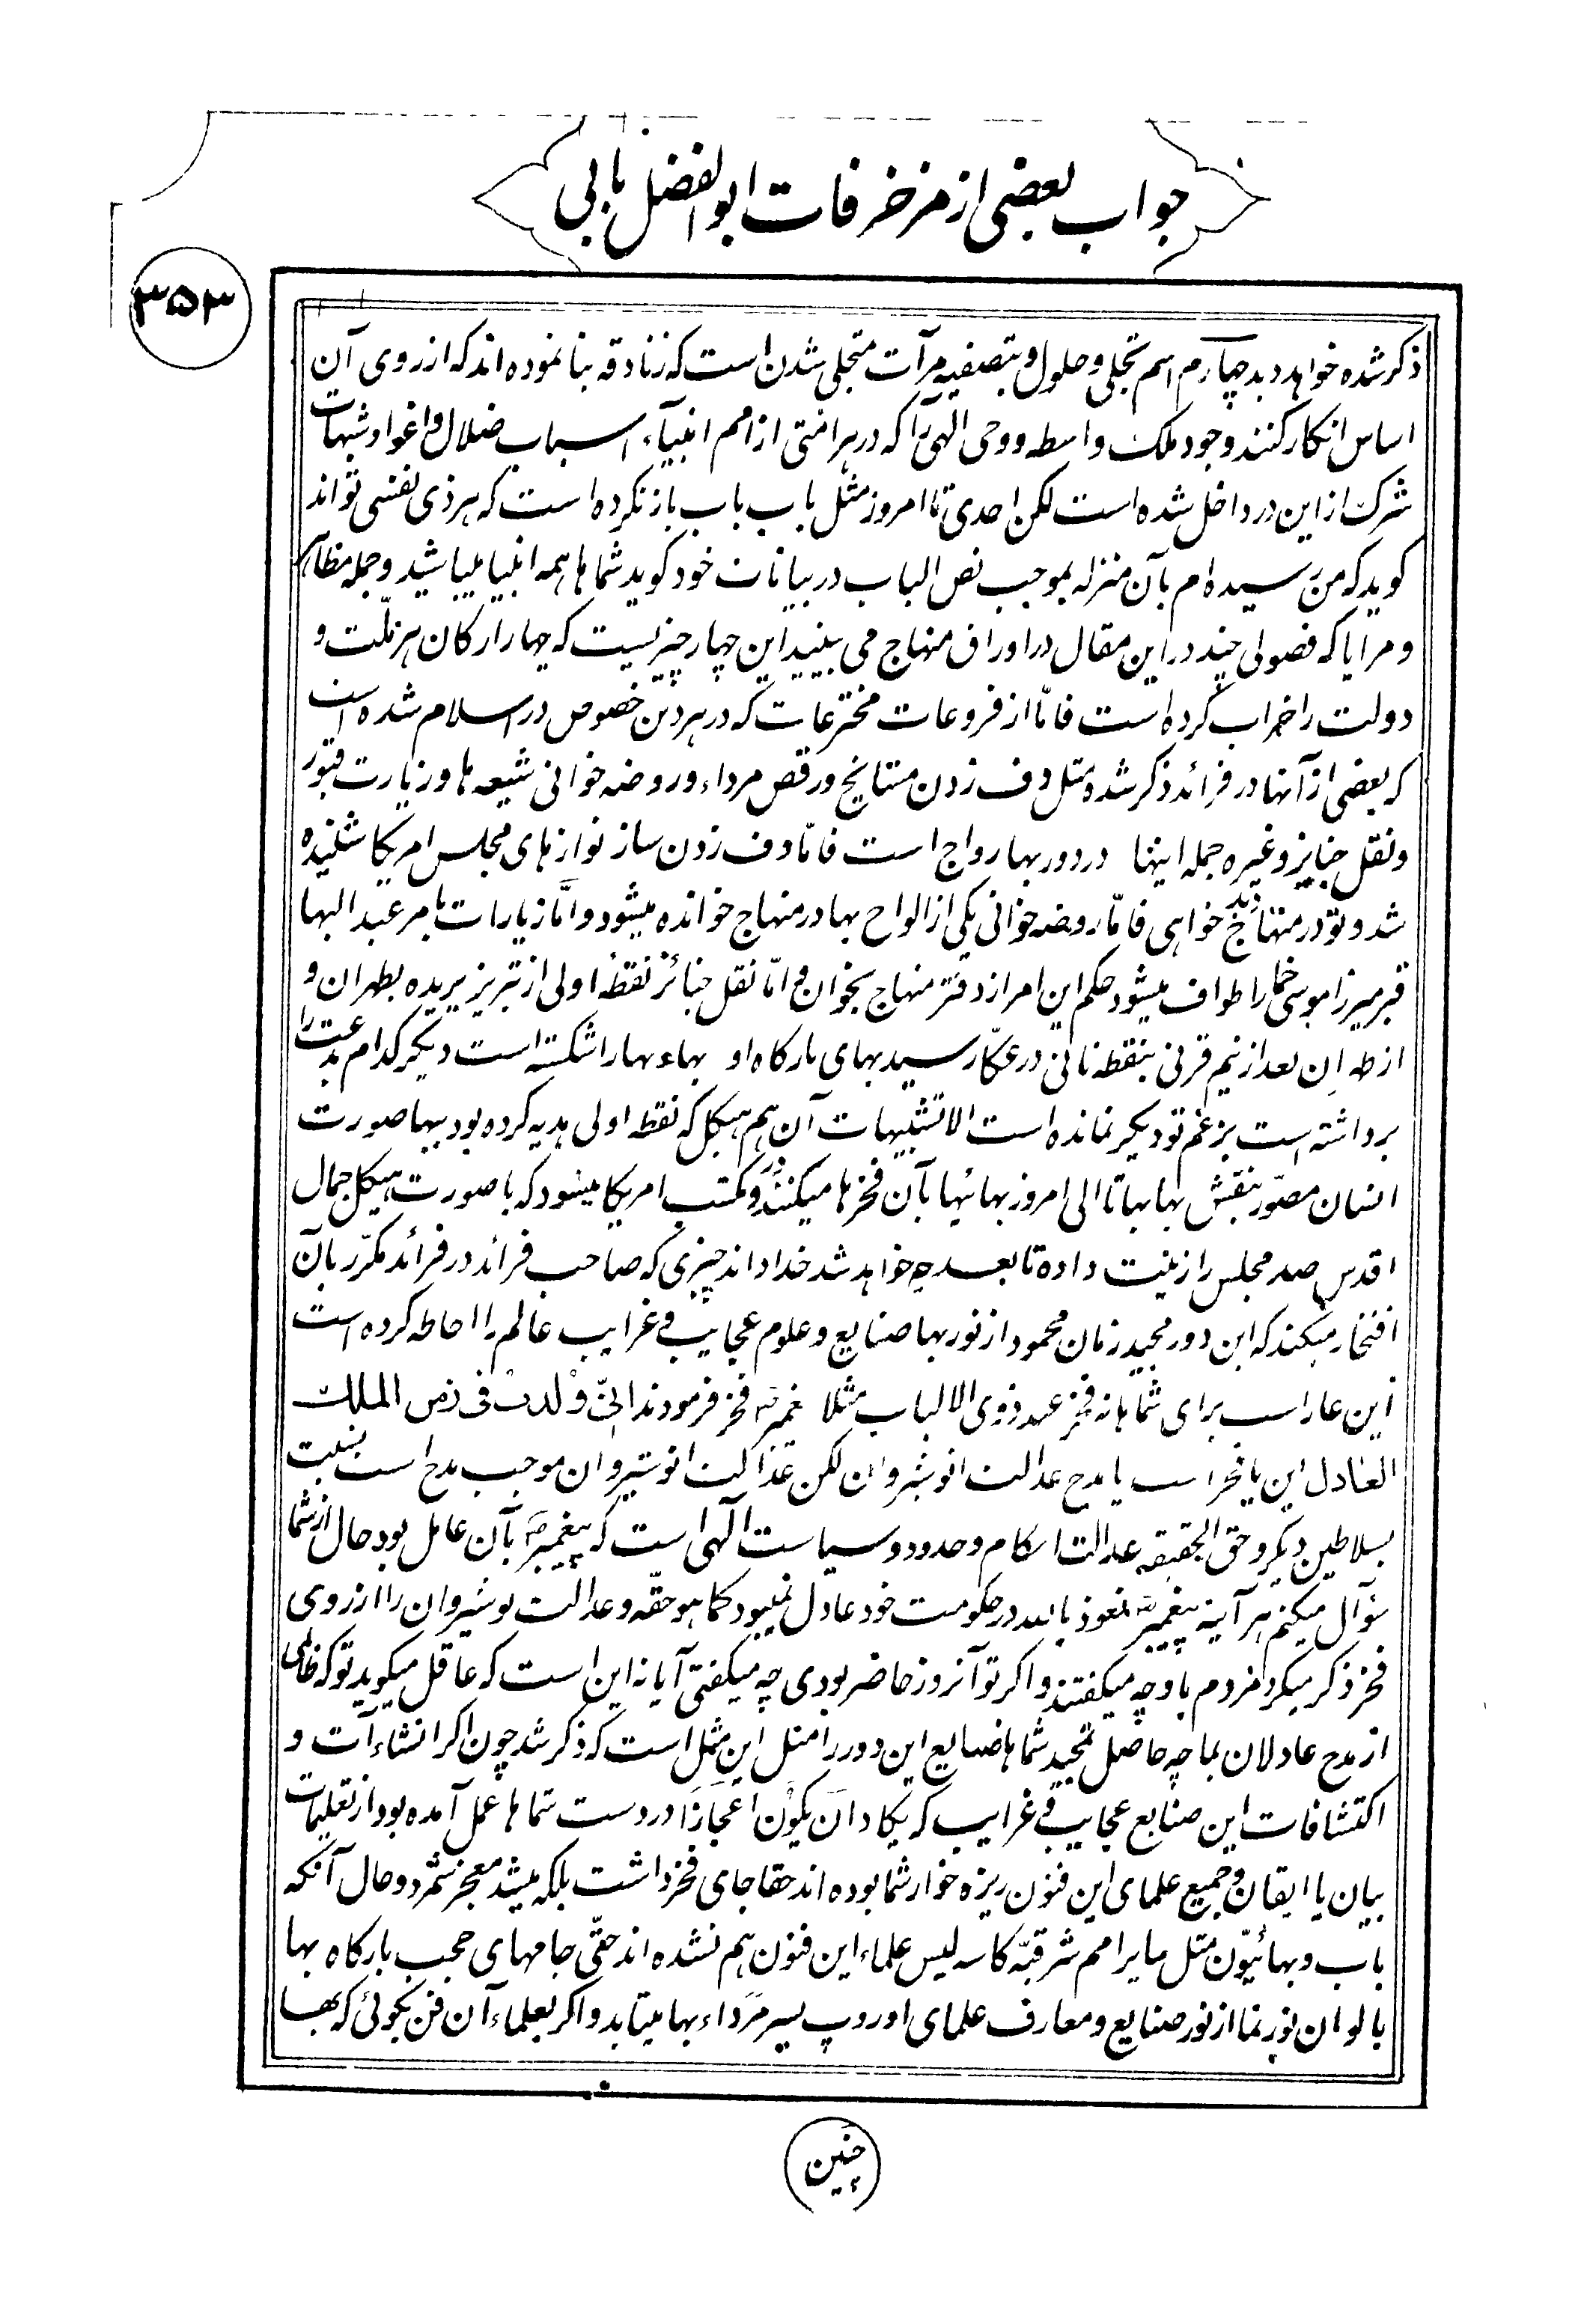 جواب بعضی از مزخرفات ابوالفضل بابی
۳۵۳
ذکر شده خواهد دید چهارم اسم تجلی و حلول و بتصفیه مرآت متجلی شدن است که زنادقه بنا نموده اند که از روی آن
اساس انکار کنند وجود ملک واسطه و وحی الهی را که در هر امتی از امم انبیآء اسباب ضلال و اغوا و شبهات
شرک از این در داخل شده است لکن احدی تا امروز مثل باب باب باز نکرده است که هر ذی نفسی تواند
کوید که من رسیده ام بآن منزله بموجب نص الباب در بیانات خود کوید شماها همه انبیا میباشید و جمله مظاهر
و مرایا که فصولی چند در این مقال در اوراق منهاج می بینید این چهار چیزیست که چهار ارکان هر ملت و
دولت را خراب کرده است فامّا از فروعات مخترعات که در هر دین خصوص در اسلام شده است
که بعضی از آنها در فرائد ذکر شده مثل دف زدن مشایخ و رقص مرداء و روضه خوانی شیعه ها و زیارت قبور
و نقل جنایز و غیره جمله اینها در دور بها رواج است فامّا دف زدن ساز نوازهای مجلس امریکا شنیده
شد و تو در منهاج دید خواهی فامّا روضه خوانی یکی از الواح بها در منهاج خوانده میشود و امّا زیارات بامر عبدالبها
قبر میرزا موسی خمار را طواف میشود حکم این امر از دفتر منهاج بخوان و امّا نقل جنائز نقطهٔ اولی از تبریز بریده بطهران و
از طهران بعد از نیم قرنی بنقطه ثانی در عکّا رسید بهای بارکاه او بهاء بها را شکسته است دیکر کدام بدعت را
برداشته است بزعم تو دیکر نمانده است الا تشبیهات آن هم هیکل که نقطه اولی هدیه کرده بود ببها صورت
انسان مصوّر بنقش بها بها تا الی امروز بهائیها بآن فخرها میکنند و در مکتب امریکا میشود که با صورت هیکل جمال
اقدس صدر مجلس را زینت داده تا بعد چه خواهد شد خدا داند چیزی که صاحب فرائد در فرائد مکرّر بآن
افتخار میکند که این دور مجید زمان محمود از نور بها صنایع و علوم عجایب و غرایب عالم را احاطه کرده است
این عار است برای شماها نه فخر عند ذوی الالباب مثلا پیغمبر ص فخر فرمودند انیّ وُلدتُ فی زمن الملک
العادل این یا فخر است یا مدح عدالت انوشیروان لکن عدالت انوشیروان موجب مدح است بنسبت
بسلاطین دیکر و حق الحقیقه عدالت احکام و حدود و سیاست الهی است که پیغمبر ص بآن عامل بود حال از شما
سؤال میکنم هر آینه پیغمبر ص نعوذ بالله در حکومت خود عادل نمیبود کما هو حقّه و عدالت نوشیروان را از روی
فخر ذکر میکرد مردم باو چه میکفتند و اکر تو آنروز حاضر بودی چه میکفتی آیا نه این است که عاقل میکوید تو که ظالمی
از مدح عادلان بما چه حاصل تمجید شماها صنایع این دور را مثل این مثل است که ذکر شد چون اکر انشاءآت و
اکتشافات این صنایع عجایب و غرایب که یکاد انَ یکوُن اعجازًا در دست شماها عمل آمده بود از تعلیمات
بیان یا ایقان و جمیع علمای این فنون ریزه خوار شما بوده اند حقا جای فخر داشت بلکه میشد معجز شمرد و حال آنکه
باب و بهائیوّن مثل سایر امم شرقیّه کاسه لیس علماء این فنون هم نشده اند حتّی جامهای حجب بارکاه بها
بالوان نور نما از نور صنایع و معارف علمای اوروپ بسیر مرداء بها میتابد و اکر بعلماء آن فن بکوئی که بها
چنین